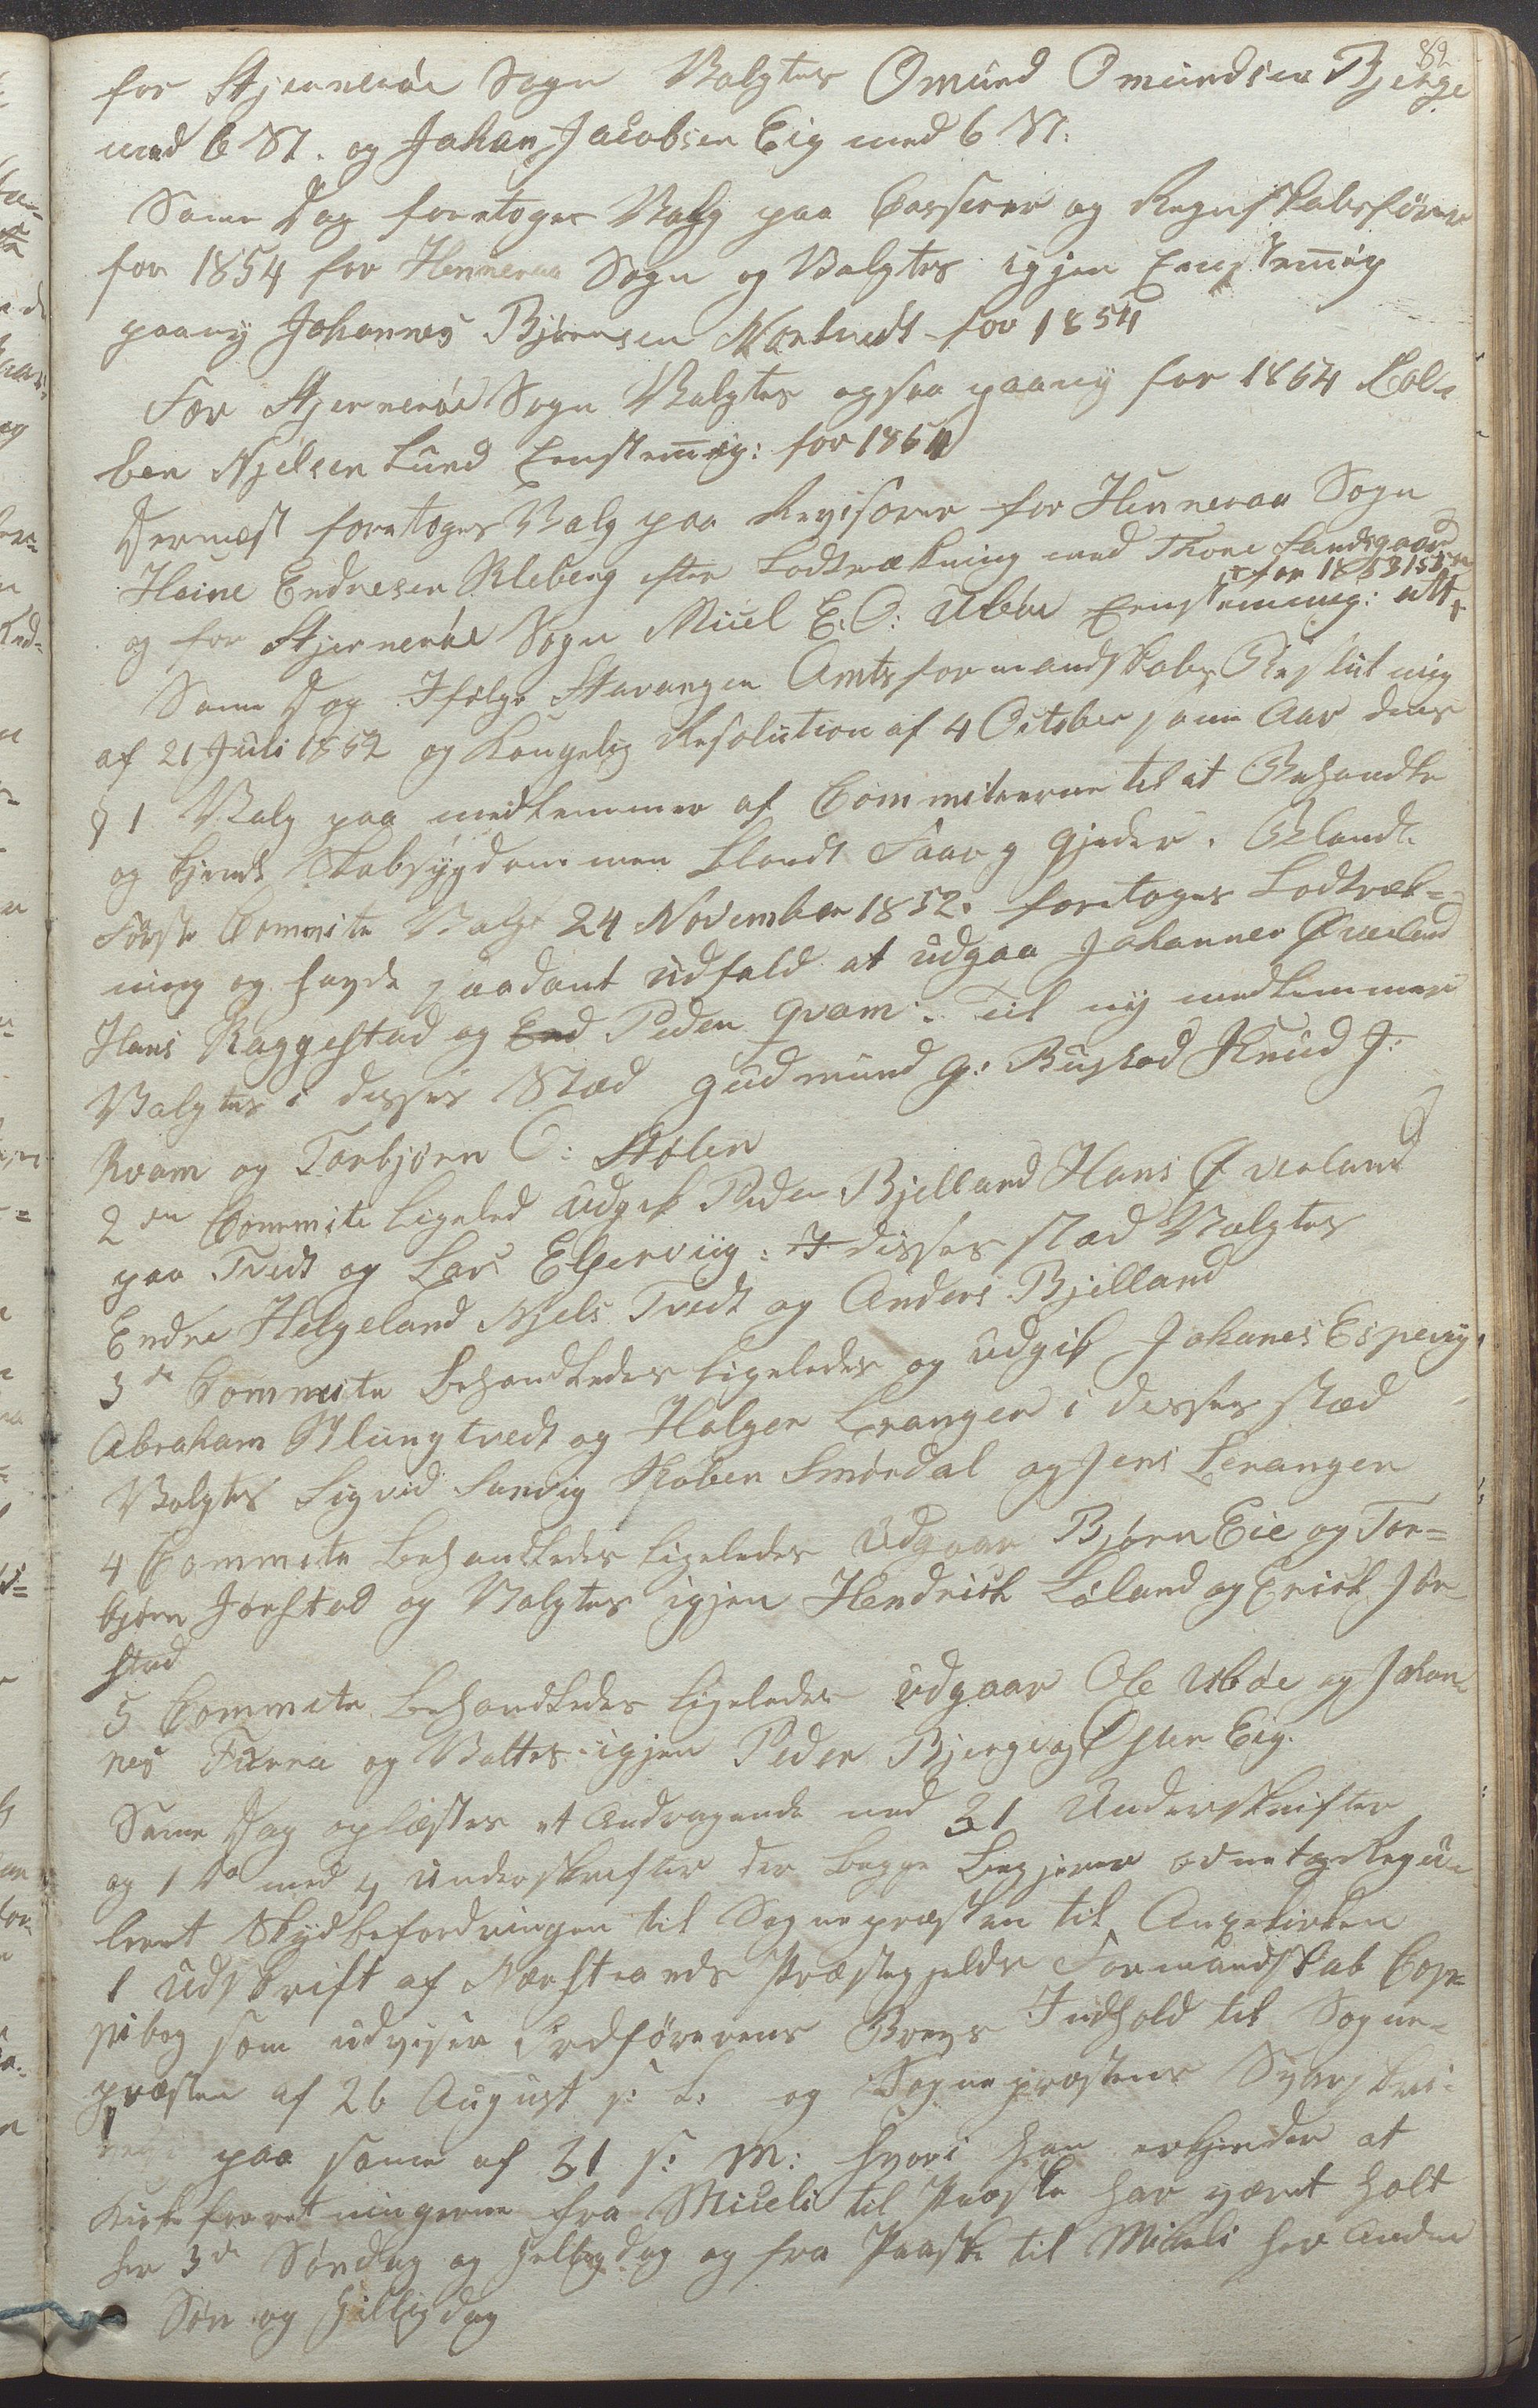 89
for Stjernerøe Sogn Valgtes Omund Omundsen Bjerge
med 6 St. og Johan Jacobsen Eig med 6 St:
Same Dag foretoges Valg paa Casserer og Regnskabsfører
for 1854 for Hinneraa Sogn og Valgtes igjen Enstemig
paany Johannes Bjørnsen Nordtvedt for 1854
For Stjernerøe Sogn Valgtes ogsaa paany for 1854 Kol-
ben Njelsen Lund Enstemig: for 1854
Dernæst foretoges Valg paa Revisorer for Hinneraa Sogn
Heine Endresen Kleberg efter Lodtrækning med Thore Landsgaard
for 1853
og for Stjernerøe Sogn Miul E. O: Ubøe Enstemmig:
Same Dag Ifølge Stavanger Amtsformandskabs Beslutning
af 21 Juli 1852 og Kongelig Resolution af 4 October same Aar dens
§ 1 Valg paa medlemmer af Commiteerne til at Behandle
og kjende Skabsygdommen blandt Faar og Gjeder. Blandt
Første Commite Valgt 24 November 1852. foretoges Lodtræk=
ning og havde saadant udfald at udgaa Johannes Øverland
Hans Raggestad og End Peder Qvam: Til ny medlemmer
Valgtes i disses Sted Gudmund G: Bustad Knud J:
Kvam og Torbjørn O: Stølen
2den Commite ligeled udgik Peder Bjelland Hans Øverland
paa Tvedt og Lars Elgerviig: I disses sted Valgtes
Endre Helgeland Njels Tvedt og Anders Bjelland
3de Commite behandledes ligeledes og udgik Johanes Espevig
Abraham Slungtvedt og Holger Leranger i disses sted
Valgtes Sigvid Sanvig Kolben Smørdal og Jens Leranger
4 Commite behandledes ligeledes udgaar Bjørn Eie og Tor=
bjørn Jørstad og Valgtes igjen Hendrick Løland og Erick Jør
stad
5 Commite behandledes ligeledes udgaar Ole Ubøe og Johan
nes Furra og Valtes igjen Peder Bjerge og Østen Eig.
Same Dag oplæstes et Andragende med 31 Underskrifter
og 1 do med 4 Underskrifter der begge begjerer Regu-
leret Skydsbefordringen til Sognepræsten til Anexkirken
1 Udskrift af Nærstrands Præstegjelds Formandskab Cop=
pibog som udviser Ordførerens Brevs Indhold til Sogne-
præsten af 26 August s: L: og Sognepræstens
paa same af 31 s: M: hvori han erkjender at
Kirkeforretningerne fra Miceli til Paaske har været holt
hver 3de Søndag og helligdag og fra Paaske til Micali hver Anden
Søn og Hilligdag